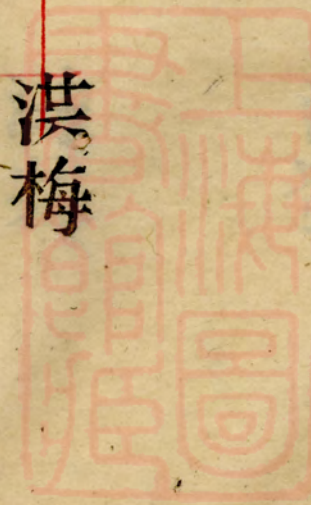 洪梅
上海圖
書館藏